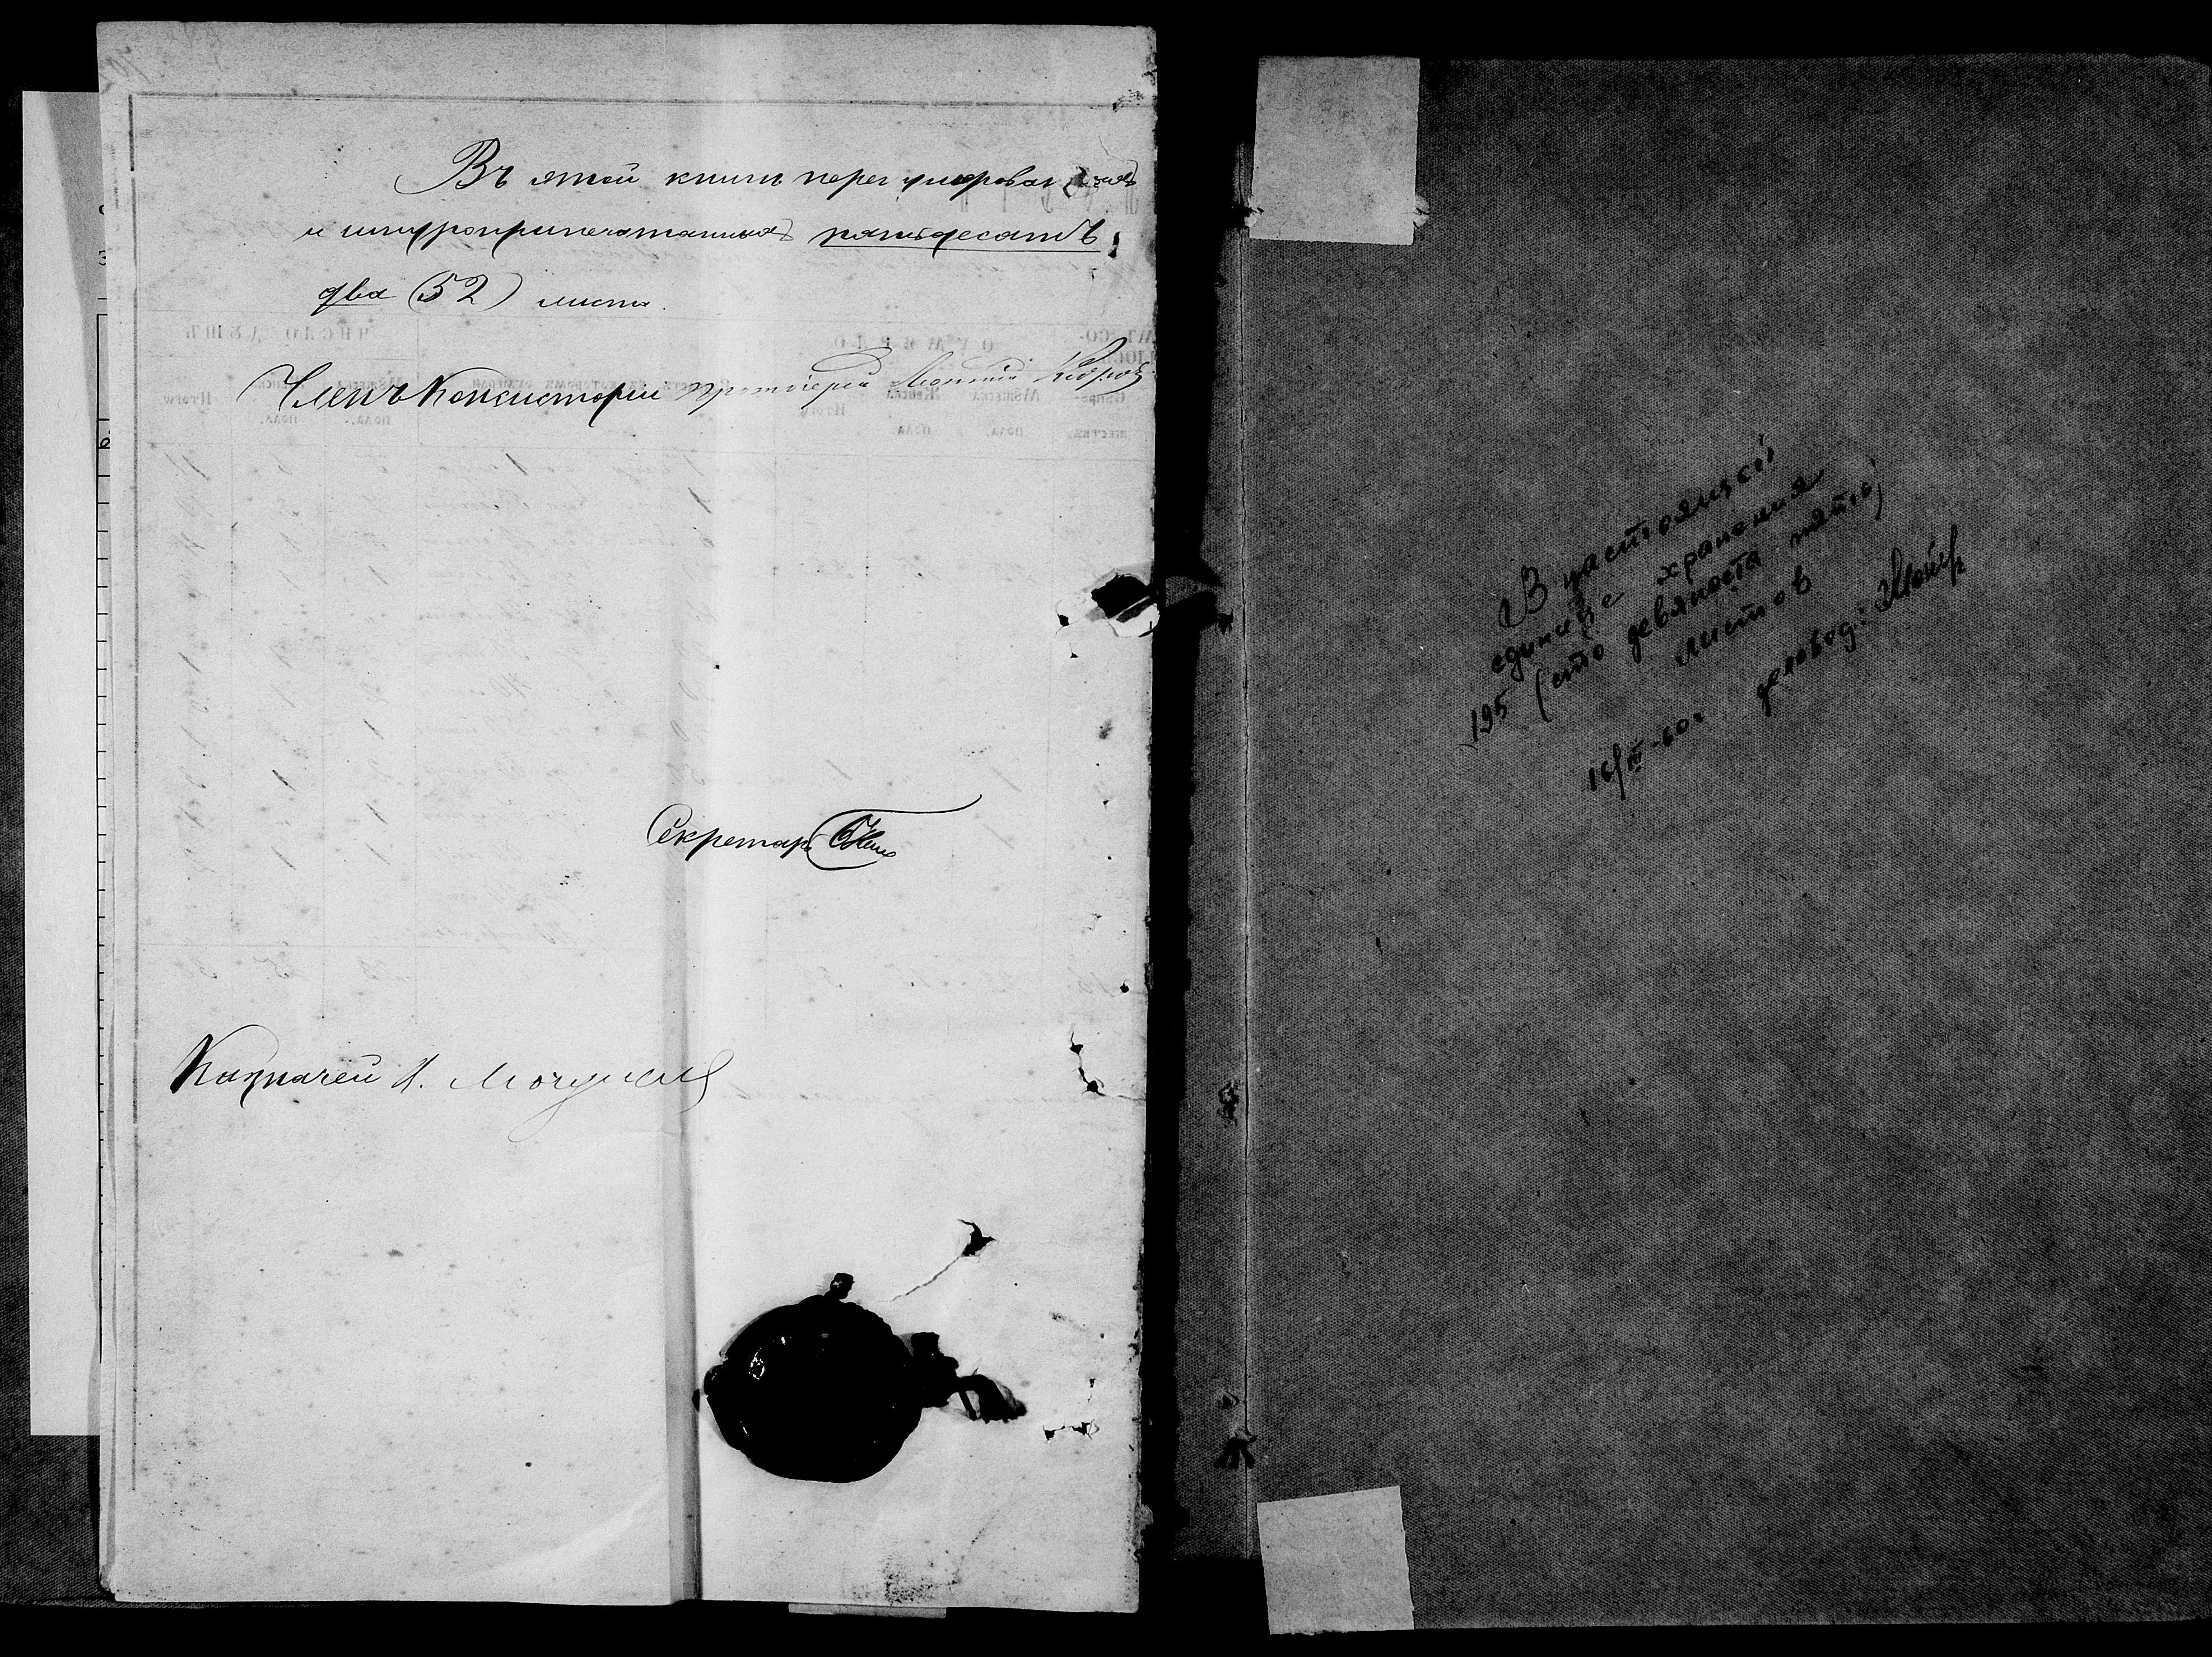 Въ этой книгѣ перенумерованныхъ
и шнуроприпечатанныхъ пятьдесятъ
два (52) листа.
Членъ Консисторіи протоіерей
Секретарь
Казначей
В настоящей
единице хранения
195 (сто девяноста пять)
листов
16/III-60г деловод: